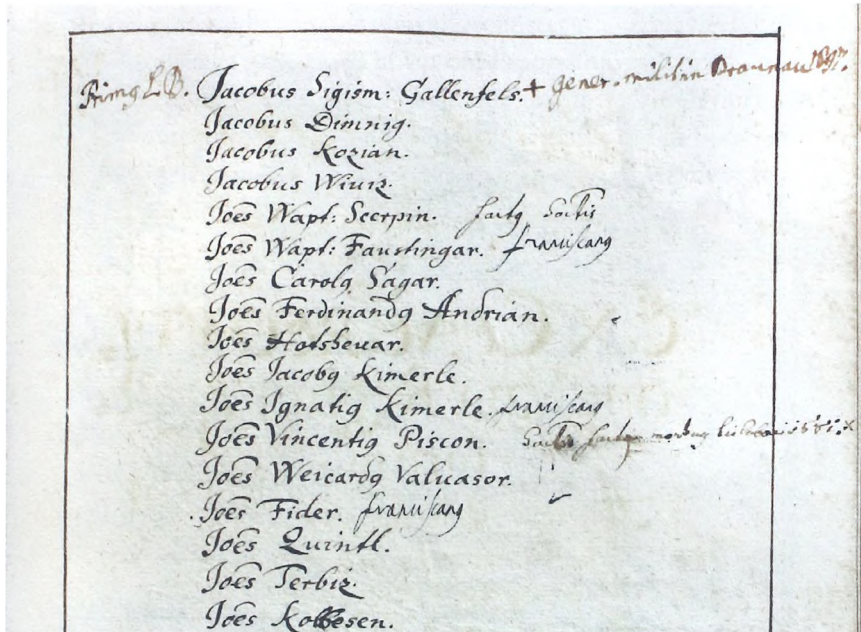 Primg L.B. Jacobus Sigism: Gallenfels. + gener. militiæ Braunau 1697.
Jacobus Dimnig.
Jacobus Kozian.
Jacobus Wiviz.
Joēs Wapt: Scerpin. factg Soctis
Joēs Wapt: Faustingar. franciscang
Joēs Carolg Sagar.
Joēs Ferdinandg Andrian.
Joēs Hotsheuar.
Joēs Jacobg Kimerle.
Joēs Ignatig Kimerle. franciscang
Joēs Vincentig Piscon.
Joēs Weicardg Valuasor.
Joēs Fider. franciscang
Joēs Quintl.
Joēs Terbiz.
Joēs Kobesen.